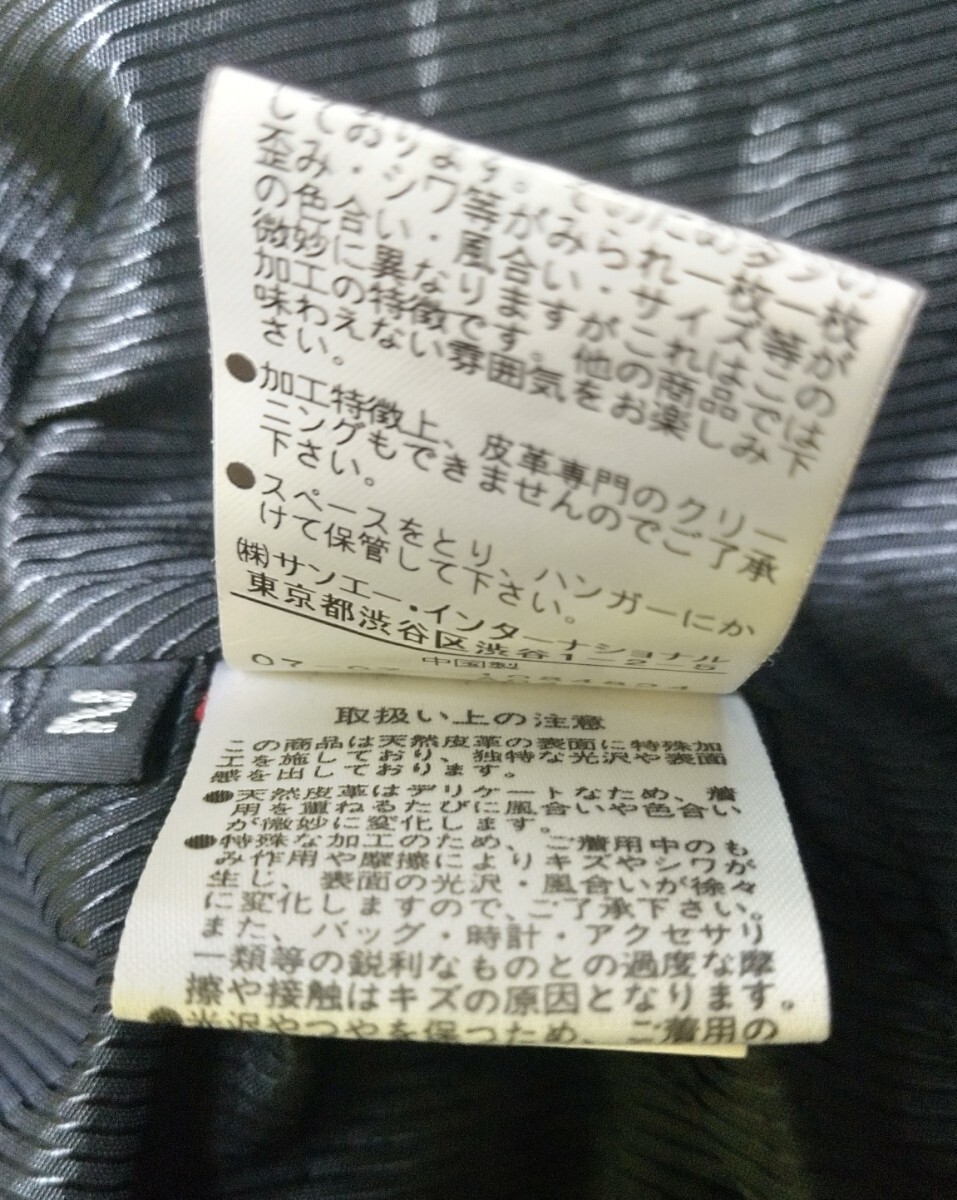 しております。そのためタグの
歪み・シワ等がみられ一枚一枚
の色合い・風合い・サイズ等が
微妙に異なりますがこれはこの
加工の特徴です。他の商品では
味わえない雰囲気をお楽しみ下
さい。
●加工特徴上、皮革専門のクリー
ニングもできませんのでご了承
下さい。
●スペースをとり、ハンガーにか
けて保管して下さい。
㈱サンエー・インターナショナル
東京都渋谷区渋谷1-2-5
中国製
2
取扱い上の注意
この商品は天然皮革の表面に特殊加
工を施しており、独特な光沢や表面
感を出しております。
●天然皮革はデリケートなため、着
用を重ねるたびに風合いや色合い
が微妙に変化します。
●特殊な加工のため、ご着用中のも
み作用や摩擦によりキズやシワが
生じ、表面の光沢・風合いが徐々
に変化しますので、ご了承下さい。
また、バッグ・時計・アクセサリ
ー類等の鋭利なものとの過度な摩
擦や接触はキズの原因となります。
●光沢やつやを保つため、ご着用の